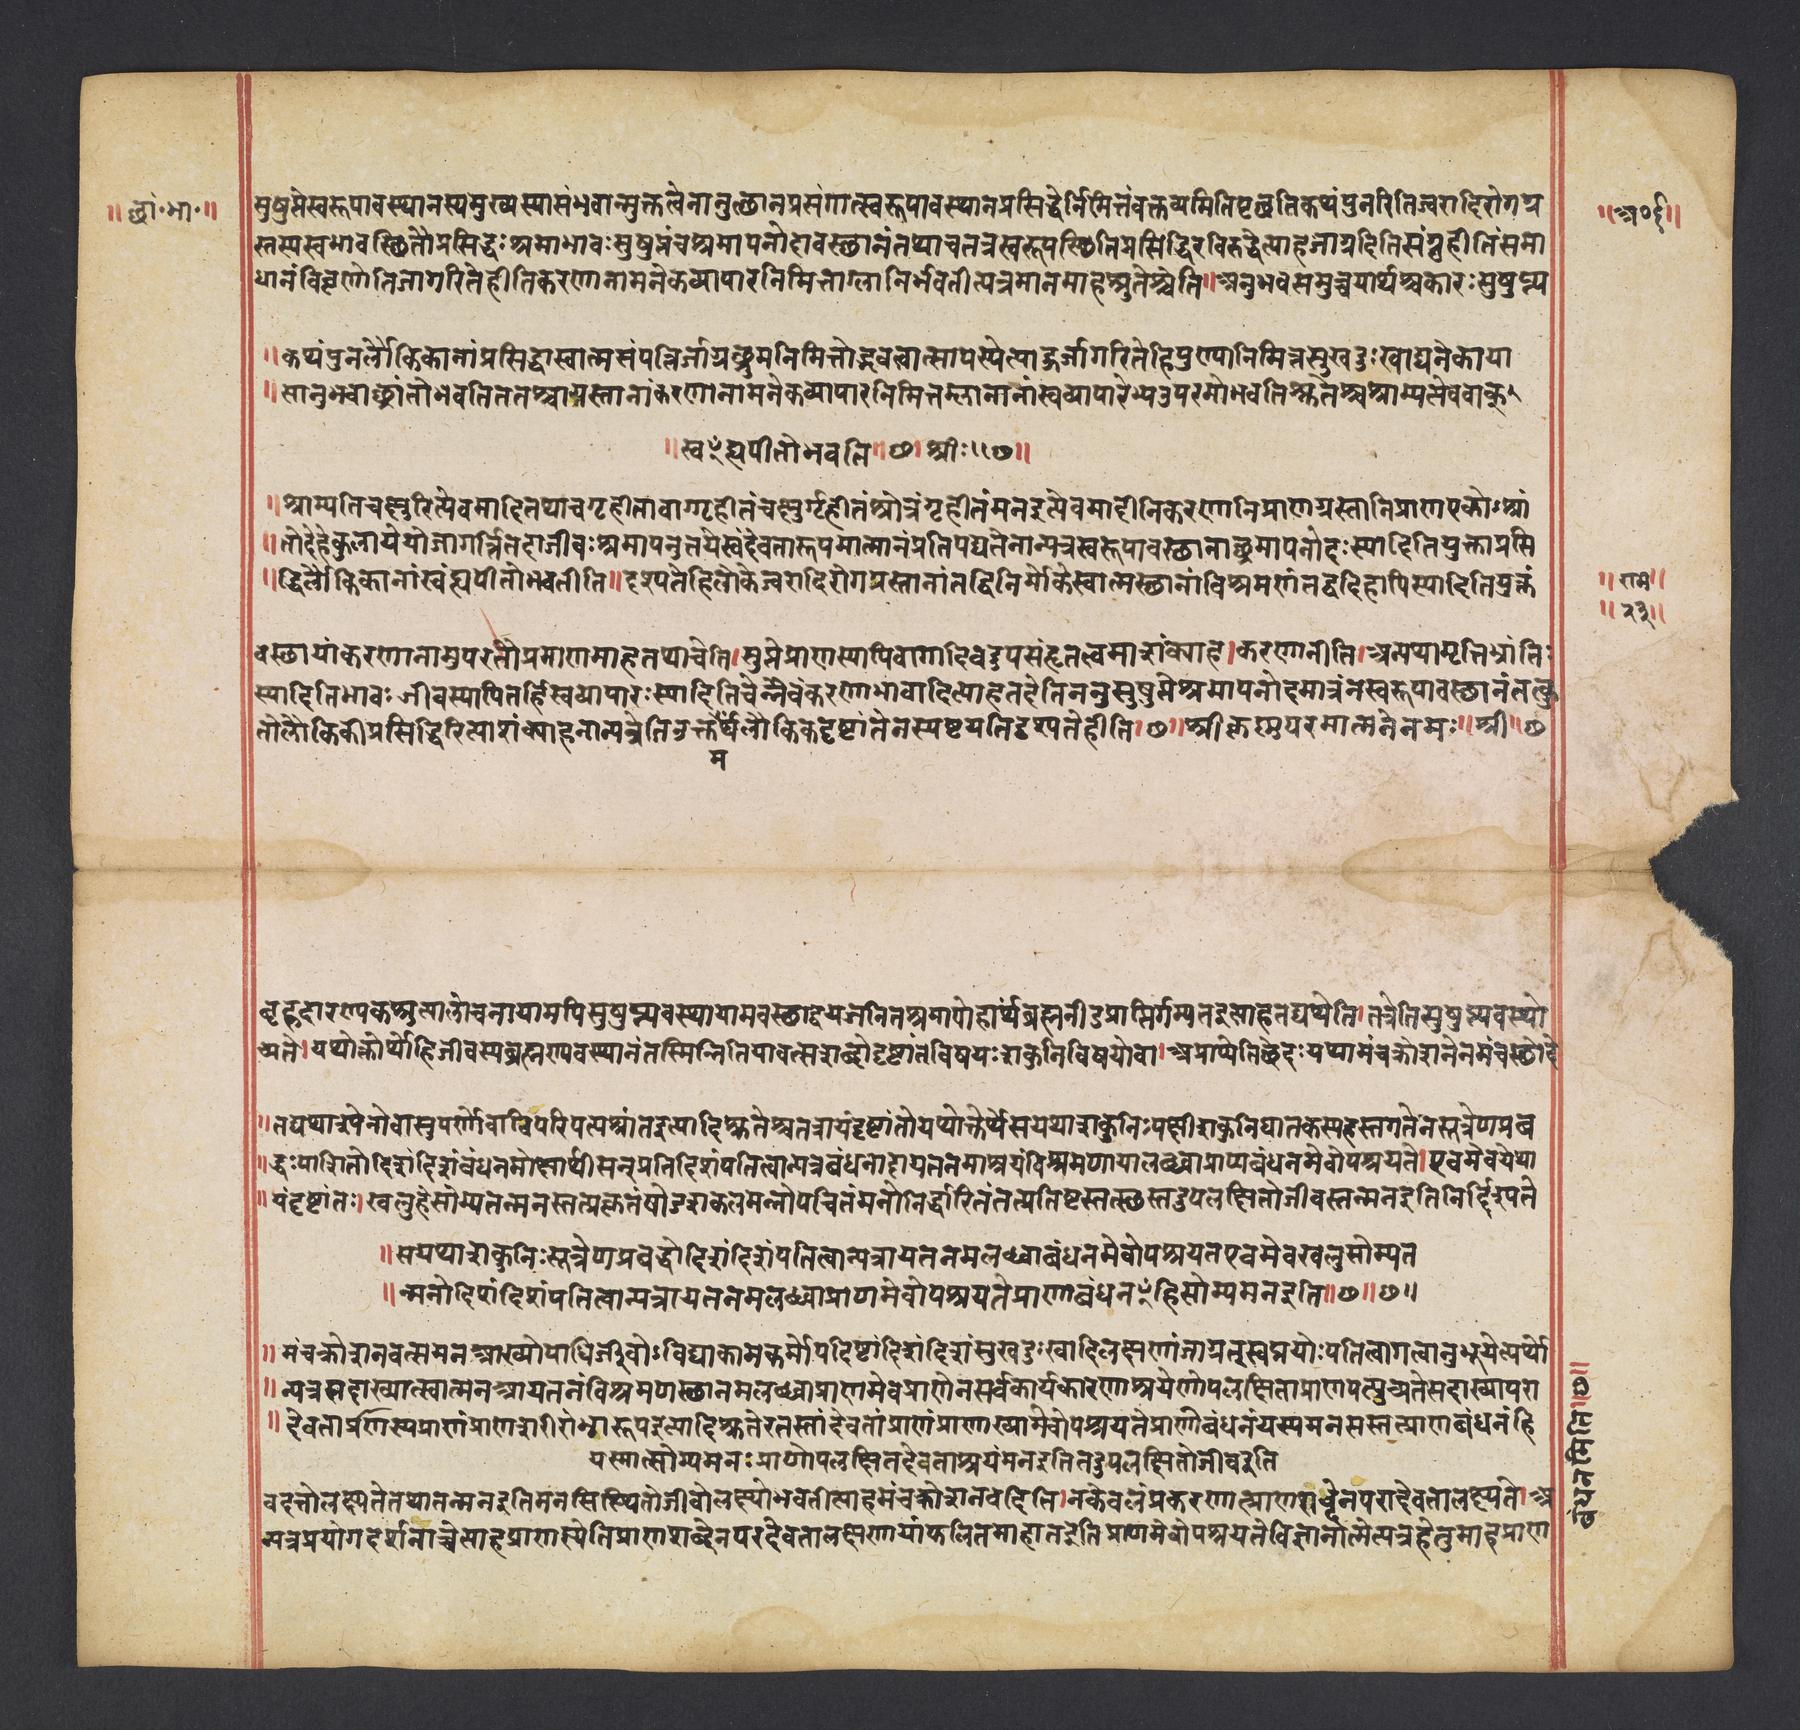 ॥छां॰भा॰॥
॥अ०६॥
सुषुप्तेस्वरूपावस्थानस्यमुख्यस्यासंभवान्मुक्तत्वेनानुत्थानप्रसंगात्स्वरूपावस्थानप्रसिद्धेर्निमित्तंवक्तव्यमितिपृच्छतिकथंपुनरितिज्वरादिरोगग्र
स्तस्यस्वभावस्थितौप्रसिद्धःश्रमाभावःसुषुप्तंचश्रमापनोदावस्थानंतथाचतत्रस्वरूपस्थितिप्रसिद्धिरविरुद्धेत्याहजाग्रदितिसंगृहीतंसमा
धानंविवृणोतिजागरितेहीतिकरणानामनेकव्यापारनिमित्ताग्लानिर्भवतीत्यत्रमानमाहश्रुतेश्चेति॥अनुभवसमुच्चयार्थश्चकारःसुषुप्त्य
॥कथंपुनर्लौकिकानांप्रसिद्धास्वात्मसंपत्तिर्जाग्रच्छ्रमनिमित्तोद्भवत्वात्स्वापस्येत्याहुर्जागरितेहिपुण्यापुण्यनिमित्तसुखदुःखाद्यनेकाया
॥सानुभवाच्छ्रांतोभवतिततश्चायस्तानांकरणानामनेकव्यापारनिमित्तग्लानानांस्वव्यापारेभ्यउपरमोभवतिश्रुतेश्चश्राम्यत्येववाक्
॥स्वꣳह्यपीतोभवति॥७॥श्रीः॥७॥
॥श्राम्यतिचक्षुरित्येवमादितथाचगृहीतावाग्गृहीतंचक्षुर्गृहीतंश्रोत्रंगृहीतंमनइत्येवमादीनिकरणानिप्राणग्रस्तानिप्राणएकोऽश्रां
॥तोदेहेकुलायेयोजागर्तितदाजीवःश्रमापनुत्तयेस्वंदेवतारूपमात्मानंप्रतिपद्यतेनान्यत्रस्वरूपावस्थानाच्छ्रमापनोदःस्यादितियुक्ताप्रसि
॥द्धिर्लौकिकानांस्वंह्यपीतोभवतीति॥दृश्यतेहिलोकेज्वरादिरोगग्रस्तानांतद्विनिर्मोकेस्वात्मस्थानांविश्रमणंतद्वदिहापिस्यादितियुक्तं
॥राम॥
॥२३॥
वस्थायांकरणानामुपरतौप्रमाणमाहतथाचेति।सुप्तेप्राणस्यापिवागादिवदुपसंहृतत्वमाशंक्याह।करणानीति।अन्यथामृतिभ्रांतिः
स्यादितिभावःजीवस्यापितर्हिस्वव्यापारःस्यादितिचेन्नैवंकरणाभावादित्याहतदेतिननुसुषुप्तेश्रमापनोदमात्रंनस्वरूपावस्थानंतत्कु
तोलौकिकीप्रसिद्धिरित्याशंक्याहनान्यत्रेतिउक्तेर्थेलौकिकदृष्टांतेनस्पष्टयतिदृश्यतेहीति॥७॥श्रीकृष्णपरमात्मनेनमः॥श्री॥७
म
बृहदारण्यकश्रुत्यालोचनायामपिसुषुप्त्यवस्थायामवस्थाद्वयजनितश्रमापोहार्थंब्रह्मनीडप्राप्तिर्गम्यतइत्याहतद्यथेति।तत्रेतिसुषुप्त्यवस्थो
च्यते।यथोक्तोर्थोहिजीवस्यब्रह्मण्यवस्थानंतस्मिन्नितियावत्सशब्दोदृष्टांतविषयःशकुनिविषयोवा।अप्राप्येतिछेदःयथामंचक्रोशनेनमंचस्थोदे
॥तद्यथाश्येनोवासुपर्णोवाविपरिपत्यश्रांतइत्यादिश्रुतेश्चतत्रायंदृष्टांतोयथोक्तेर्थेसयथाशकुनिःपक्षीशकुनिघातकस्यहस्तगतेनसूत्रेणप्रब
॥द्धःपाशितोदिशंदिशंबंधनमोक्षार्थीसन्प्रतिदिशंपतित्वान्यत्रबंधनादायतनमाश्रयंविश्रमणायालब्ध्वाप्राप्यबंधनमेवोपश्रयते।एवमेवयथा
॥यंदृष्टांतः।खलुहेसोम्यतन्मनस्तत्प्रकृतंषोडशकलमन्नोपचितंमनोनिर्धारितंतत्प्रविष्टस्तत्स्थस्तदुपलक्षितोजीवस्तन्मनइतिनिर्दिश्यते
॥सयथाशकुनिःसूत्रेणप्रबद्धोदिशंदिशंपतित्वान्यत्रायतनमलब्ध्वाबंधनमेवोपश्रयतएवमेवखलुसोम्यत
॥न्मनोदिशंदिशंपतित्वान्यत्रायतनमलब्ध्वाप्राणमेवोपश्रयतेप्राणबंधनꣳहिसोम्यमनइति॥७॥७॥
॥मंचक्रोशनवत्समनआख्योपाधिर्जीवोऽविद्याकामकर्मोपदिष्टांदिशंदिशंसुखदुःखादिलक्षणांजाग्रत्स्वप्नयोःपतित्वागत्वानुभूयेत्यर्थो
॥न्यत्रसदाख्यात्स्वात्मनआयतनंविश्रमणस्थानमलब्ध्वाप्राणमेवप्राणेनसर्वकार्यकारणाश्रयेणोपलक्षिताप्राणइत्युच्यतेसदाख्यापरा
॥देवताप्राणस्यप्राणंप्राणशरीरोभारूपइत्यादिश्रुतेरतस्तांदेवतांप्राणंप्राणाख्यामेवोपश्रयतेप्राणोबंधनंयस्यमनसस्तत्प्राणबंधनंहि
यस्मात्सोम्यमनःप्राणोपलक्षितदेवताश्रयंमनइतितदुपलक्षितोजीवइति
वदत्तोलक्ष्यतेतथातन्मनइतिमनसिस्थितोजीवोलक्ष्योभवतीत्याहमंचक्रोशनवदिति।नकेवलंप्रकरणात्प्राणशब्देनपरादेवतालक्ष्यते।अ
न्यत्रप्रयोगदर्शनाच्चेत्याहप्राणस्येतिप्राणशब्देनपरदेवतालक्षणायांफलितमाहातइतिप्राणमेवोपश्रयतेविज्ञानात्मेत्यत्रहेतुमाहप्राण